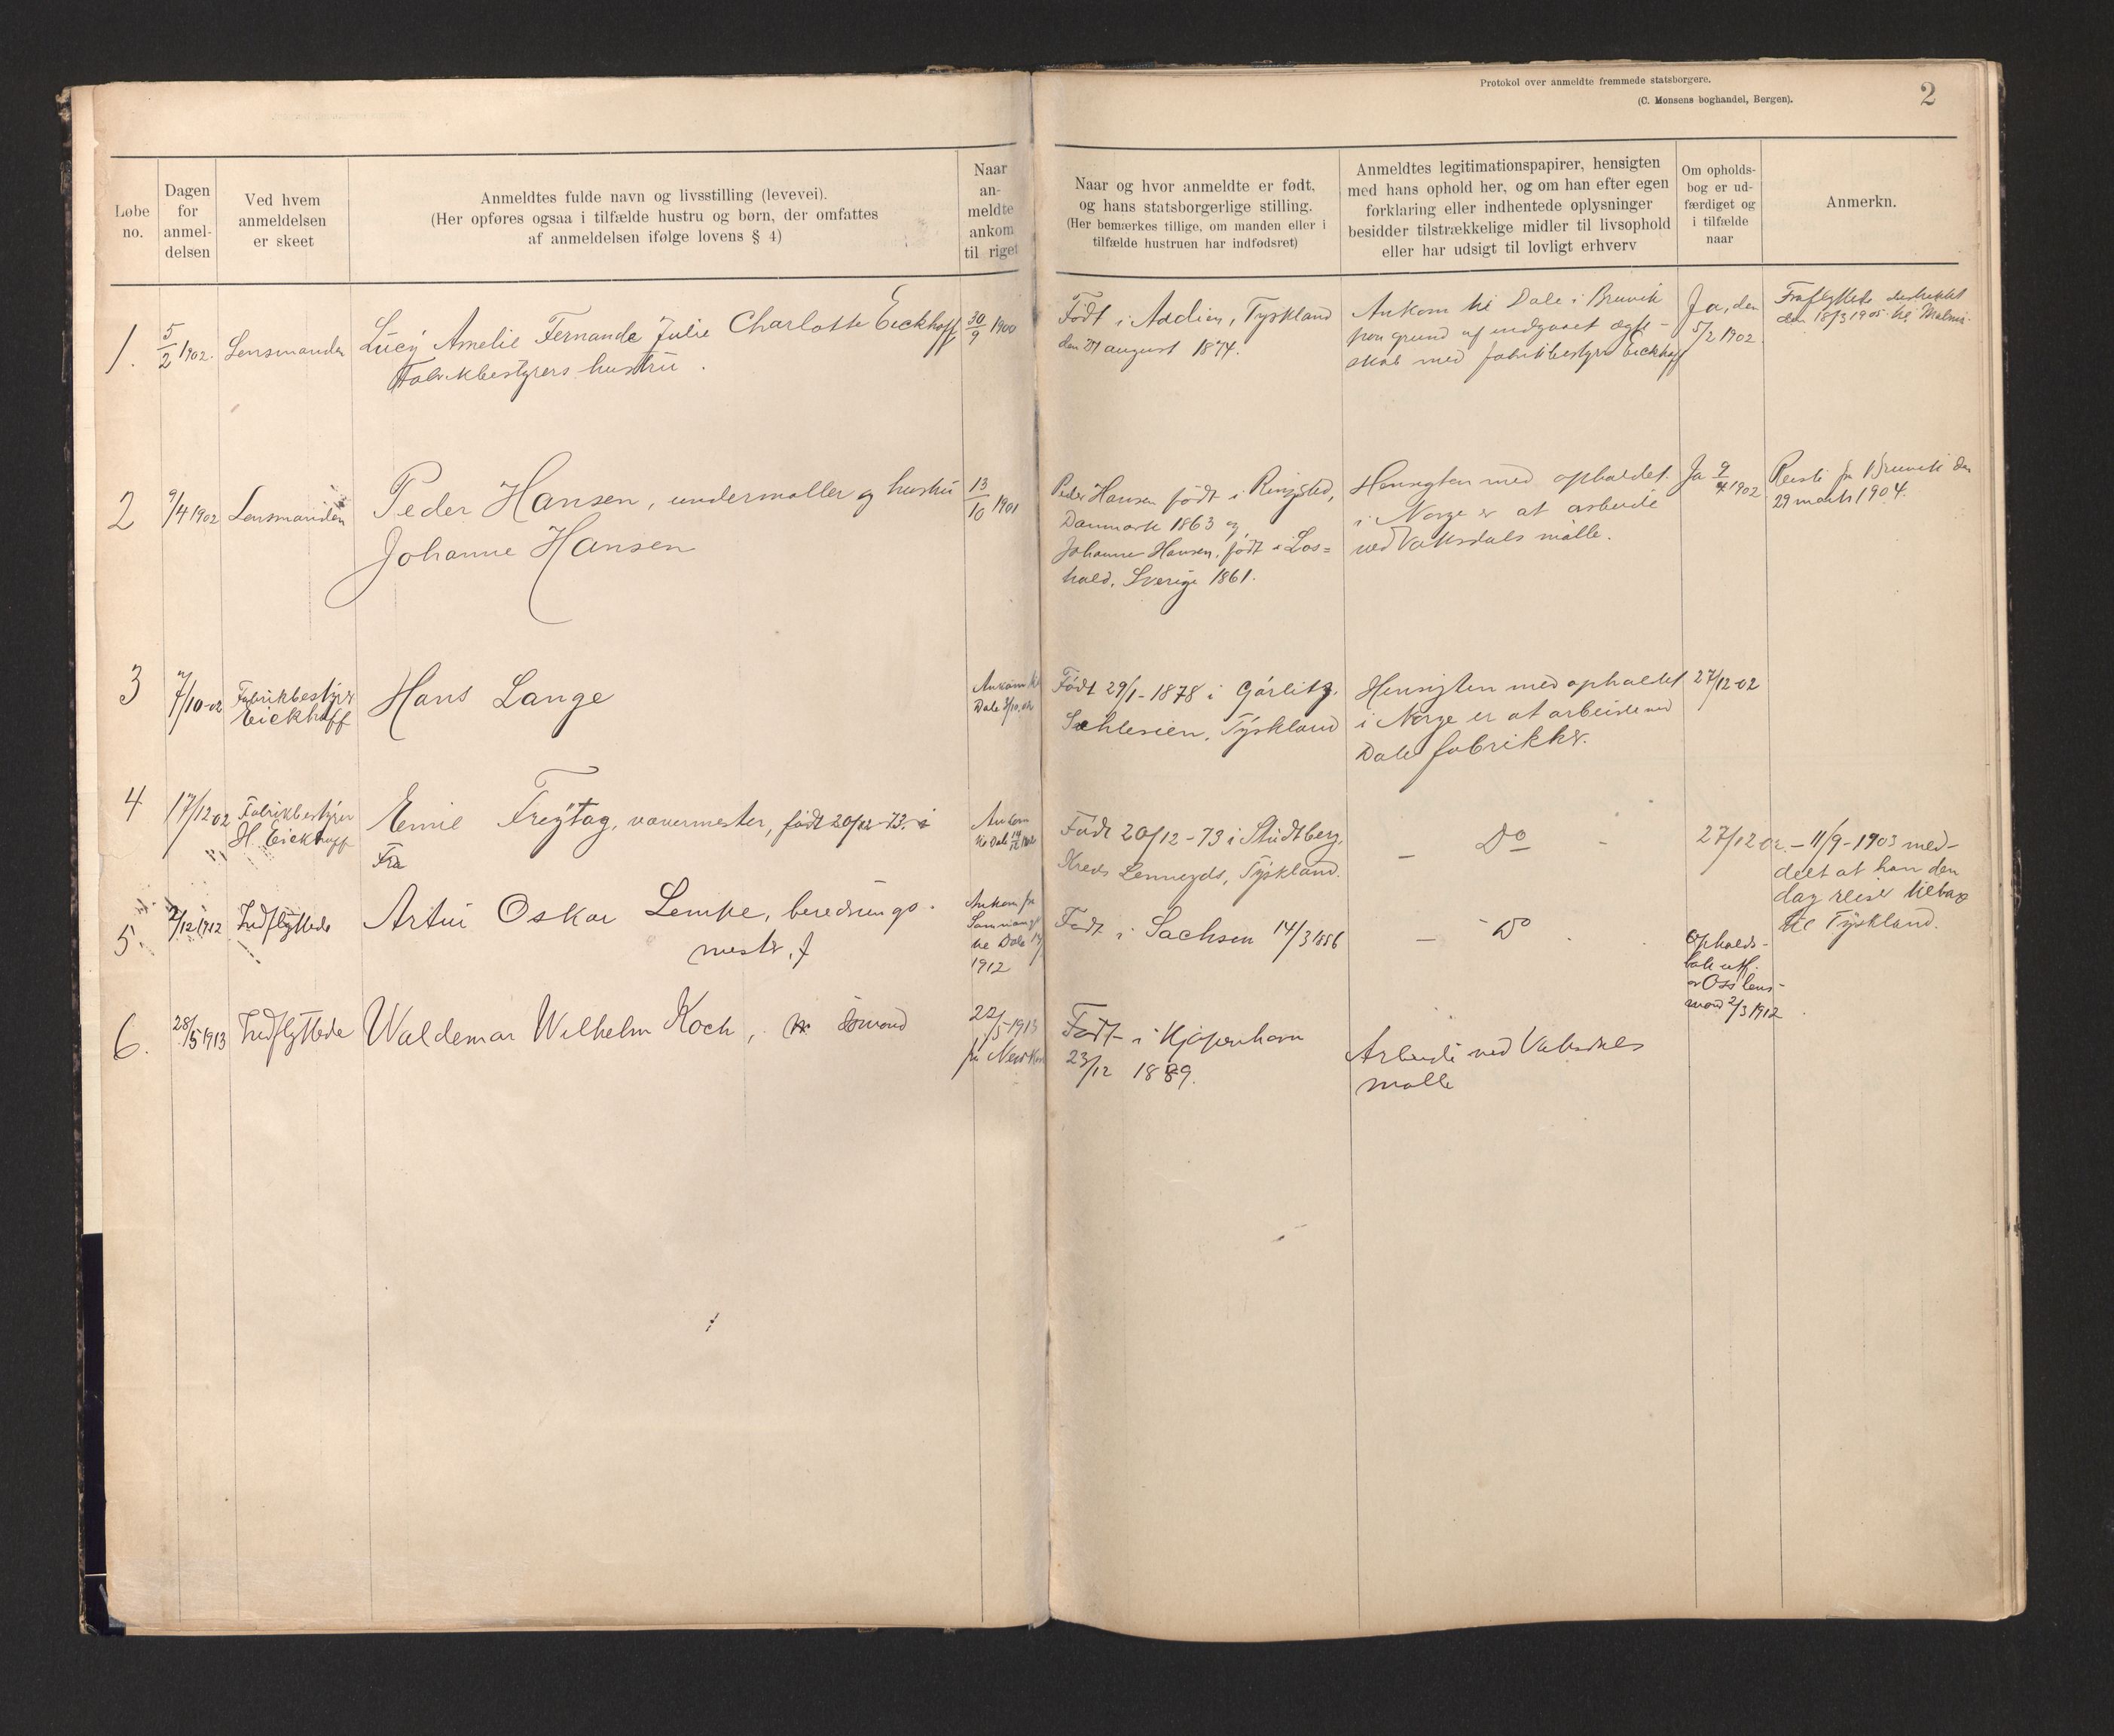 Protokol over anmeldte fremmede statsborgere.
(C. Monsens boghandel, Bergen).
2
Løbe
no.
Dagen
for
anmel-
delsen
Ved hvem
anmeldelsen
er skeet
Anmeldtes fulde navn og livsstilling (levevei).
(Her opføres ogsaa i tilfælde hustru og børn, der omfattes
af anmeldelsen ifølge lovens § 4)
Naar
an-
meldte
ankom
til riget
Naar og hvor anmeldte er født,
og hans statsborgerlige stilling.
(Her bemærkes tillige, om manden eller i
tilfælde hustruen har indfødsret)
Anmeldtes legitimationspapirer, hensigten
med hans ophold her, og om han efter egen
forklaring eller indhentede oplysninger
besidder tilstrækkelige midler til livsophold
eller har udsigt til lovligt erhverv
Om opholds-
bog er ud-
færdiget og
i tilfælde
naar
Anmerkn.
1.
5/2 1902.
Lensmanden
Lucy Amelie Fernande Julie Charlotte Eickhoff
Fabrikbestyrers hustru.
30/9 1900
Født i Tyskland
den august 1874.
Ankom til Dale i Bruvik
paa grund af indgaaet ægte-
skab med fabrikbestyrer Eickhoff
Ja, den
5/2 1902.
Fraflyttede distriktet
den 18/3 1905 til
2
9/4 1902
Lensmanden
Peder Hansen, undermøller og hustru
Johanne Hansen
13/10 1901
Peder Hansen født i Ringsted,
Danmark 1863 og
Johanne Hansen, født i Los=
hald, Sverige 1861.
Hensigten med opholdet
i Norge er at arbeide
ved Vaksdals mølle.
Ja 9/4 1902
Reiste fra Bruvik den
29 marts 1904.
3
7/10-02
Fabrikbestyrer
Eickhoff
Hans Lange
Ankom til
Dale
Født 29/1-1878 i Görlitz,
Schlesien, Tyskland
Hensigten med opholdet
i Norge er at arbeide ved
Dale fabrikker.
27/12-02
4
17/12-02
Fabrikbestyrer
H. Eickhoff
Emil Freytag, vævermester, født 20/12-73. i
Fra
Ankom
til Dale
Født 20/12-73 i
Kreds Tyskland.
- Do -
27/12 02.
- 11/9-1903 med-
delt at han den
dag reiser tilbage
til Tyskland.
5.
/12 1912
Indflyttede
Artur Oskar Lempe, berednings-
mester,
Ankom fra
til Dale
1912
Født i Sachsen 14/3 1886
- Do
Opholds-
bok utf.
av Os lens-
mand 2/3 1912
6.
28/5 1913
Indflyttede
Waldemar Wilhelm Koch,
22/5-1913
fra
Født i Kjøpenhavn
23/12 1889.
Arbeide ved Vaksdals
mølle